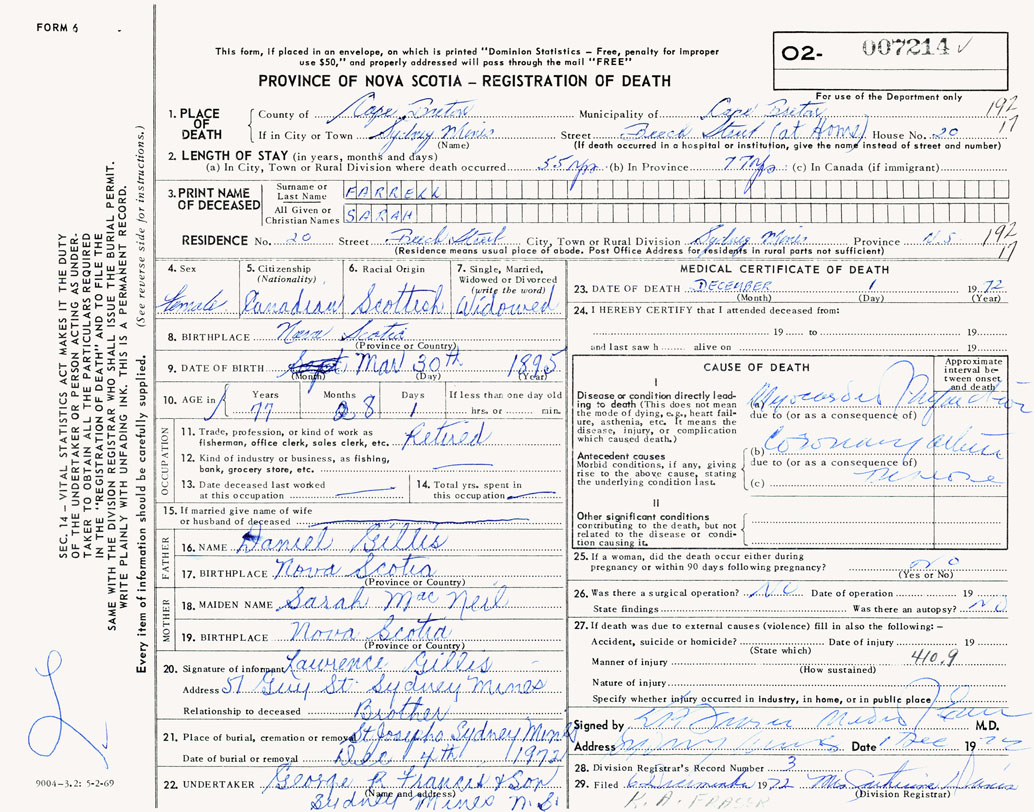 FORM 6
This form, if placed in an envelope, on which is printed "Dominion Statistics – Free, penalty for improper
use $50," and properly addressed will pass through the mail "FREE"
PROVINCE OF NOVA SCOTIA – REGISTRATION OF DEATH
O2- 007214
For use of the Department only
1. PLACE OF DEATH
County of Cape Breton Municipality of Cape Breton 192
If in City or Town Sydney Mines Street Beech Street (at Home) House No. 20 17
(Name) (If death occurred in a hospital or institution, give the name instead of street and number)
2. LENGTH OF STAY (in years, months and days)
(a) In City, Town or Rural Division where death occurred 55 yrs (b) In Province 77 yrs (c) In Canada (if immigrant)
3. PRINT NAME OF DECEASED
Surname or Last Name FARRELL
All Given or Christian Names SARAH
RESIDENCE No. 20 Street Beech Street City, Town or Rural Division Sydney Mines Province N.S 192
(Residence means usual place of abode. Post Office Address for residents in rural parts not sufficient) 17
4. Sex 5. Citizenship (Nationality) 6. Racial Origin 7. Single, Married, Widowed or Divorced (write the word)
Female Canadian Scottish Widowed
8. BIRTHPLACE Nova Scotia
(Province or Country)
9. DATE OF BIRTH Mar 30th 1895
(Month) (Day) (Year)
10. AGE in Years Months Days If less than one day old
77 8 1 hrs. or min.
OCCUPATION
11. Trade, profession, or kind of work as
fisherman, office clerk, sales clerk, etc. Retired
12. Kind of industry or business, as fishing,
bank, grocery store, etc.
13. Date deceased last worked
at this occupation
14. Total yrs. spent in
this occupation
15. If married give name of wife
or husband of deceased
FATHER
16. NAME Daniel Gillis
17. BIRTHPLACE Nova Scotia
(Province or Country)
MOTHER
18. MAIDEN NAME Sarah MacNeil
19. BIRTHPLACE Nova Scotia
(Province or Country)
20. Signature of informant Lawrence Gillis
Address 51 Guy St. Sydney Mines
Relationship to deceased Brother
21. Place of burial, cremation or removal St Josephs Sydney Mines
Date of burial or removal Dec 4th 1972
22. UNDERTAKER George R Francis & Son
(Name and address)
Sydney Mines N.S.
MEDICAL CERTIFICATE OF DEATH
23. DATE OF DEATH DECEMBER 1 1972
(Month) (Day) (Year)
24. I HEREBY CERTIFY that I attended deceased from:
19 to 19
and last saw h alive on 19
CAUSE OF DEATH
Approximate interval between onset and death
I
Disease or condition directly lead-
ing to death (This does not mean
the mode of dying, e.g., heart fail-
ure, asthenia, etc. It means the
disease, injury, or complication
which caused death.)
(a) Myocardial Infarction
due to (or as a consequence of)
Antecedent causes
Morbid conditions, if any, giving
rise to the above cause, stating
the underlying condition last.
(b) Coronary
due to (or as a consequence of)
(c)
II
Other significant conditions
contributing to the death, but not
related to the disease or condi-
tion causing it.
25. If a woman, did the death occur either during
pregnancy or within 90 days following pregnancy? No
(Yes or No)
26. Was there a surgical operation? No Date of operation 19
State findings Was there an autopsy? No
27. If death was due to external causes (violence) fill in also the following: –
Accident, suicide or homicide? Date of injury 19
(State which)
Manner of injury 410.9
(How sustained)
Nature of injury
Specify whether injury occurred in industry, in home, or in public place
Signed by M.D.
Address Sydney Mines Date 1 Dec 1972
28. Division Registrar's Record Number 3
29. Filed 6 December 1972
(Division Registrar)
R. A. FRASER
SEC. 14 – VITAL STATISTICS ACT MAKES IT THE DUTY
OF THE UNDERTAKER OR PERSON ACTING AS UNDER-
TAKER TO OBTAIN ALL THE PARTICULARS REQUIRED
IN THE "REGISTRATION OF DEATH" AND TO FILE THE
SAME WITH THE DIVISION REGISTRAR WHO SHALL ISSUE THE BURIAL PERMIT.
WRITE PLAINLY WITH UNFADING INK. THIS IS A PERMANENT RECORD.
Every item of information should be carefully supplied. (See reverse side for instructions.)
9004-3.2: 5-2-69